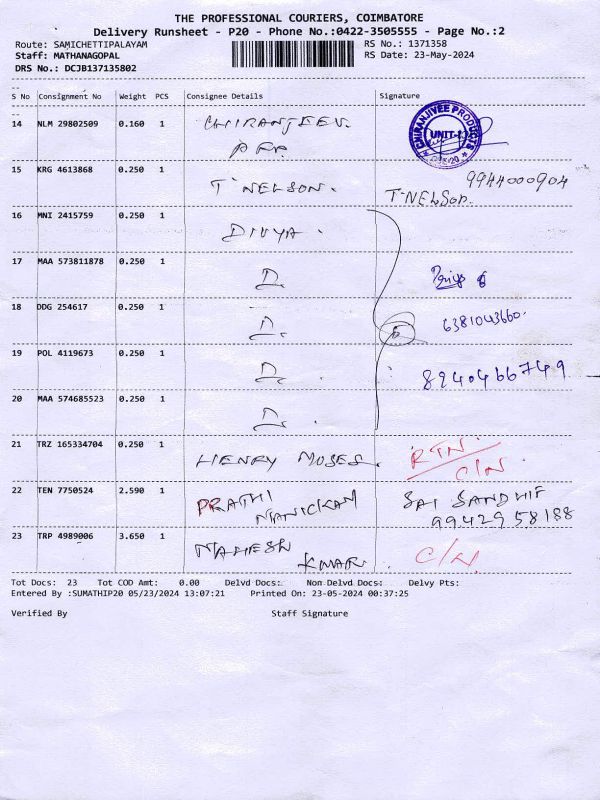 THE PROFESSIONAL COURIERS, COIMBATORE
Delivery Runsheet - P20 - Phone No.:0422-3505555 - Page No.:2
Route: SAMICHETTIPALAYAM RS No.: 1371358
Staff: MATHANAGOPAL RS Date: 23-May-2024
DRS No.: DCJB137135802
S No Consignment No Weight PCS Consignee Details Signature
14 NLM 29802509 0.160 1 CHIRANJEEV.
CHIRANJIVEE PRODUCTS
UNIT-I
15 KRG 4613868 0.250 1 T. NELSON. 9944000904
T. NELSON.
16 MNI 2415759 0.250 1 DIVYA.
17 MAA 573811878 0.250 1 D
18 DDG 254617 0.250 1 D. 6381043660.
19 POL 4119673 0.250 1 D. 8940466749
20 MAA 574685523 0.250 1 D.
21 TRZ 165334704 0.250 1 HENRY MOSES. RTN.
C/N
22 TEN 7750524 2.590 1 PRATHI MANICKAM SAI SANDHIF
9942958188
23 TRP 4989006 3.650 1 MAHESH KMAR. C/N
Tot Docs: 23 Tot COD Amt: 0.00 Delvd Docs: Non Delvd Docs: Delvy Pts:
Entered By :SUMATHIP20 05/23/2024 13:07:21 Printed On: 23-05-2024 00:37:25
Verified By Staff Signature